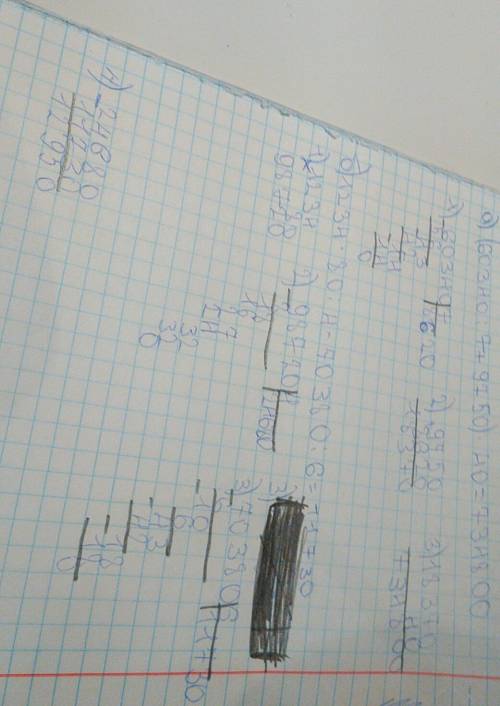 а) (60340:7+9750)·40=734800
1) 60340 7 2) 9750 3) 18370
8620 40
43 18370 734800
14
14
0
б) 1234·80:4-70380:6=11730
1) 1234 2) 98720 4 3)
80 24680
98720
18
16
27
24
32
32
0
3) 70380 6
6 11730
10
6
43
42
18
18
0
4) 24680
11730
12950